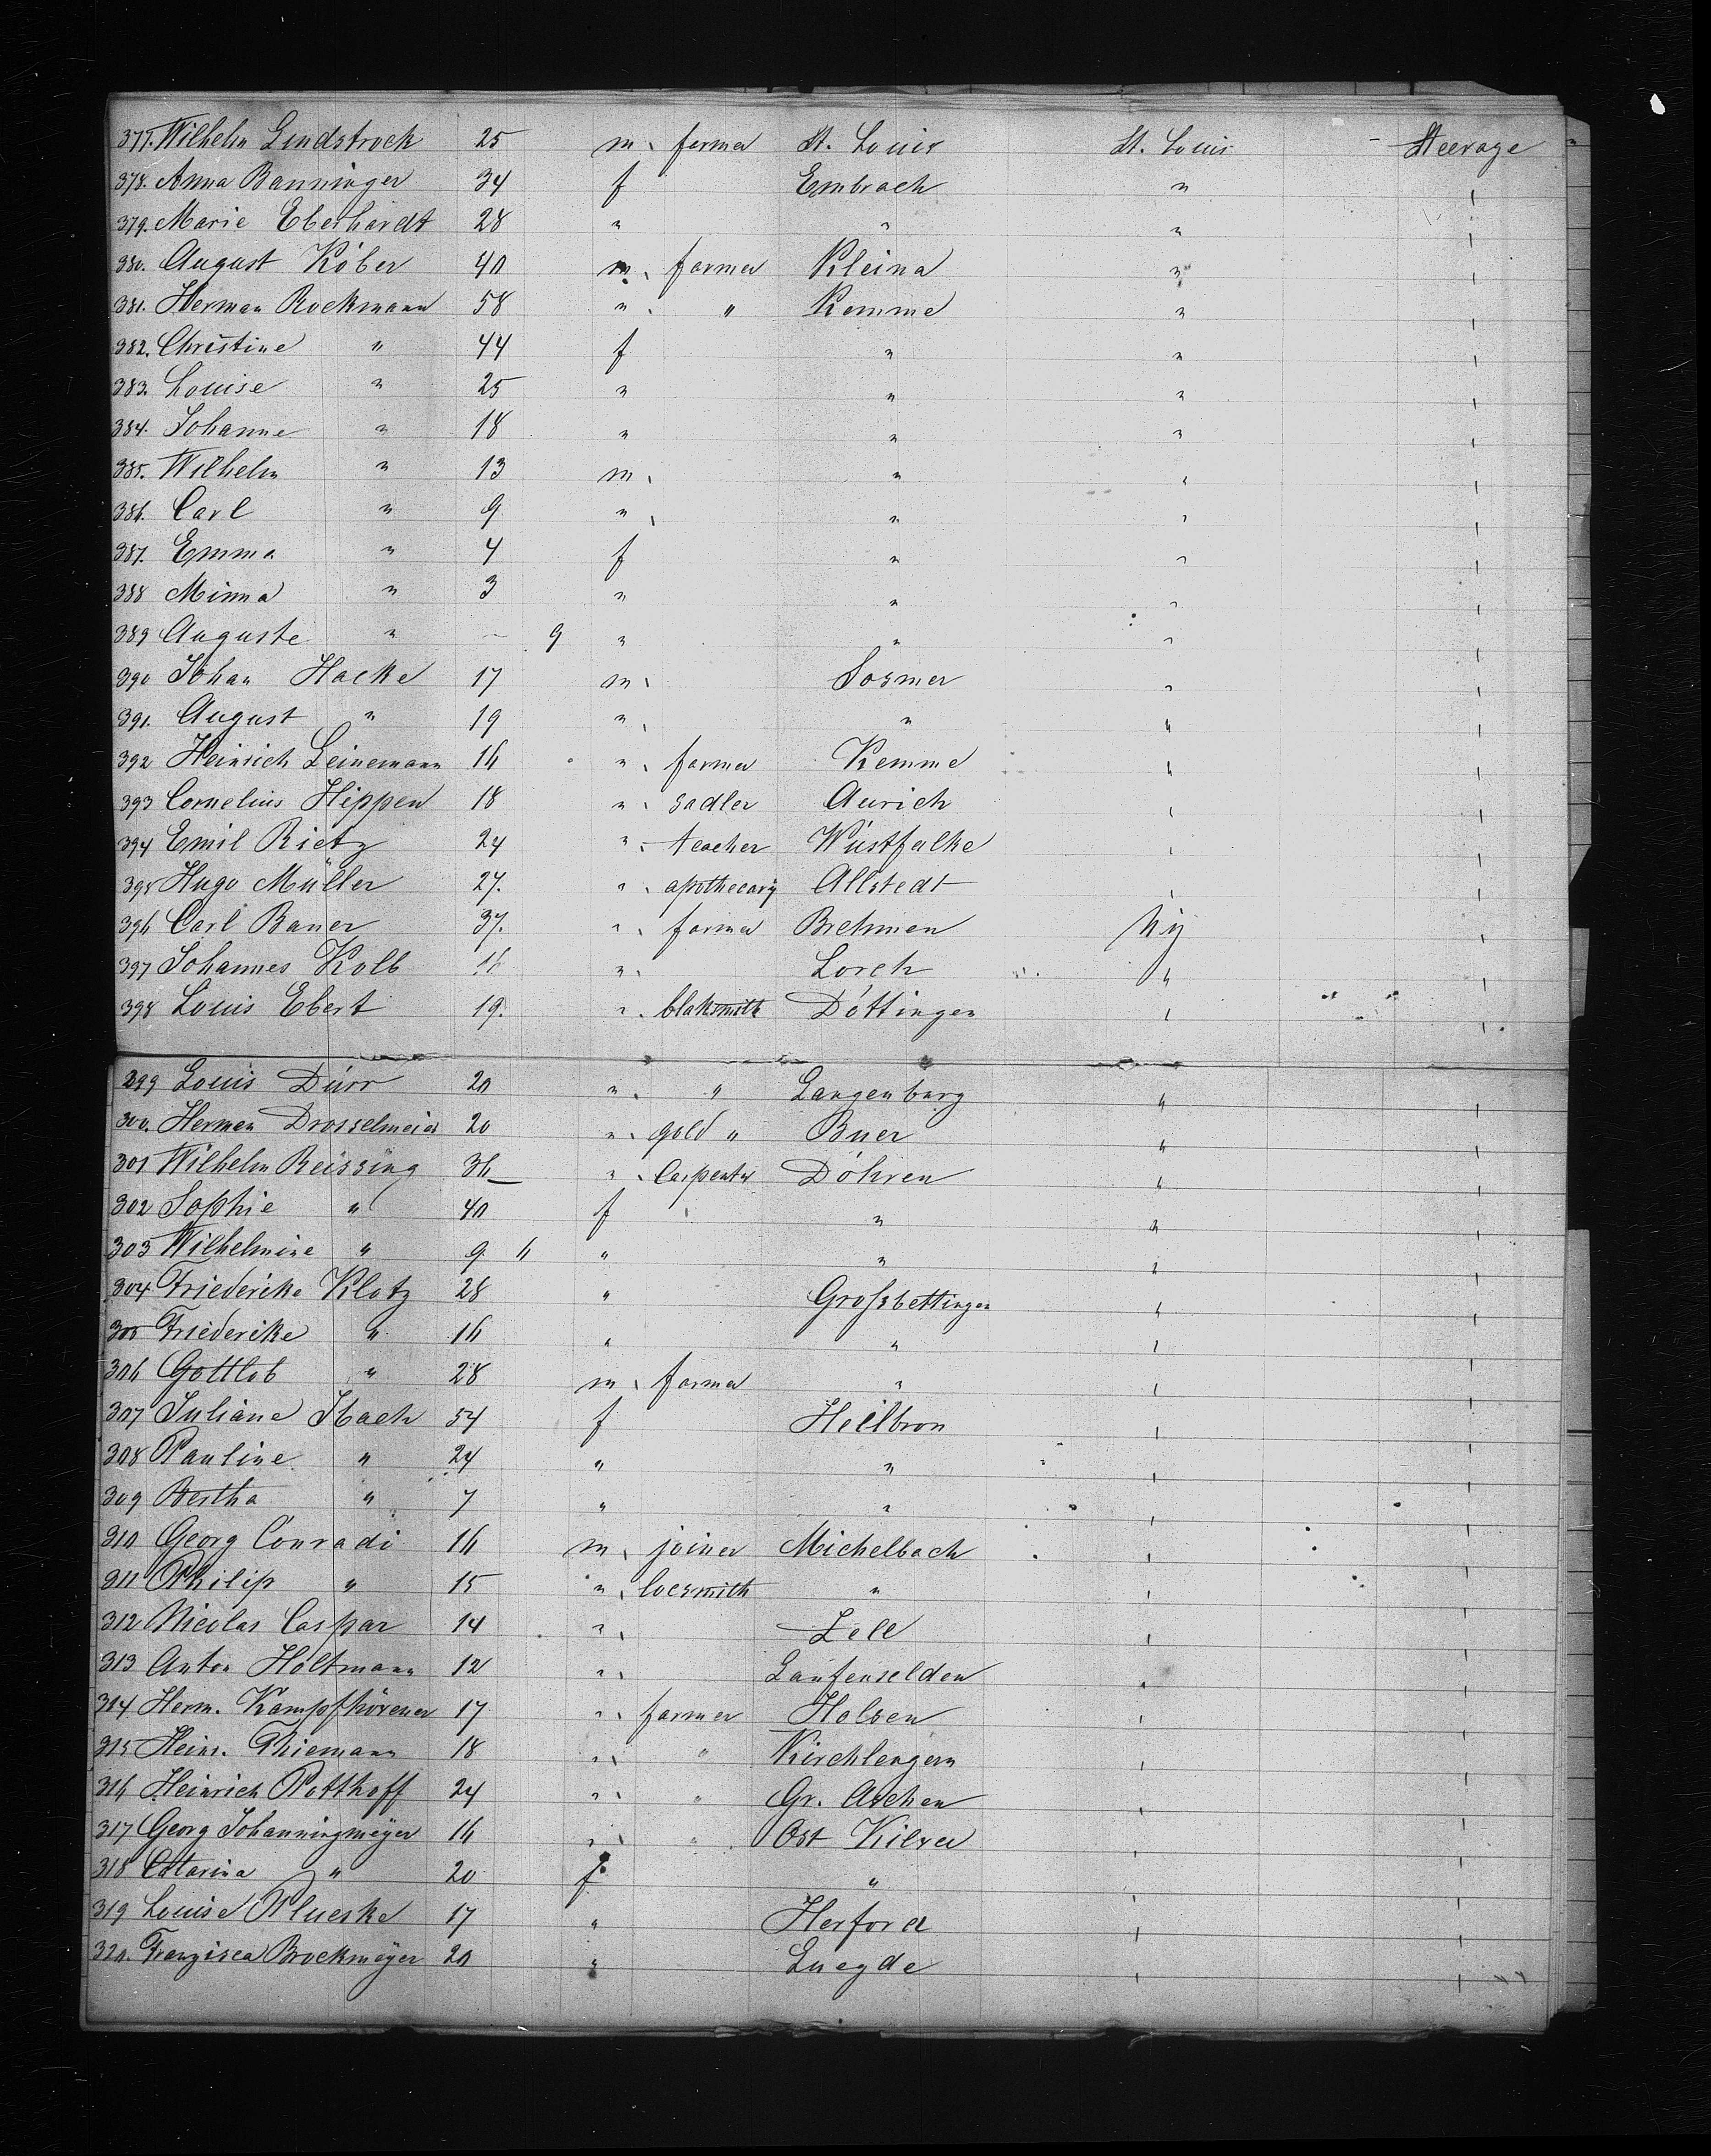 377. Wilhelm Lindstrock 25 m. farmer St. Louis St. Louis Steerage
378. Anna Banninger 34 f Embrach " "
379. Marie Eberhardt 28 " " " "
380. August Köber 40 m. farmer Kleina " "
381. Herman Rockmann 58 " " Kemme " "
382. Christine " 44 f " " "
383. Louise " 25 " " " "
384. Johanne " 18 " " " "
385. Wilhelm " 13 m. " " "
386. Carl " 9 " " " "
387. Emma " 4 f " " "
388 Minna " 3 " " " "
389 Auguste " – 9 " " " "
390 Johan Hacke 17 m. Sosmer " "
391. August " 19 " " " "
392 Heinrich Leinemann 16 " farmer Kemme " "
393 Cornelius Hippen 18 " sadler Aurich " "
394 Emil Rietz 24 " teacher Wüstfalke " "
395 Hugo Müller 27. " apothecary Allstedt " "
396 Carl Bauer 37. " farmer Brehmen Ny "
397 Johannes Kolb 16 " Lorch " "
398 Louis Ebert 19. " blaksmith Döttingen " "
299 Louis Dürr 20 " " Langenburg " "
300. Herman Drosselmeier 20 " gold " Buer " "
301 Wilhelm Reissing 36 " Carpenter Döhren " "
302 Sophie " 40 f " " "
303 Wilhelmine " 9 6 " " " "
304 Friederike Klotz 28 " Großbettingen " "
305 Friederike " 16 " " " "
306 Gottlob " 28 m. farmer " " "
307 Juliane Ibach 54 f Heilbron " "
308 Pauline " 24 " " " "
309 Bertha " 7 " " " "
310 Georg Conradi 16 m. joiner Michelbach " "
311 Philip " 15 " locsmith " " "
312 Nicolas Caspar 14 " Zell " "
313 Anton Holtmann 12 " Laufenselden " "
314 Herm. Kampfhörener 17 " farmer Holsen " "
315 Heinr. Thiemann 18 " " Kirchlengern " "
316 Heinrich Potthoff 24 " " Gr. Aschen " "
317 Georg Johanningmeyer 16 " " Ost Kilver " "
318 Catarina " 20 f " " "
319 Louise Plueske 17 " Herford " "
320. Franzisca Brockmeyer 20 " Luegde " "